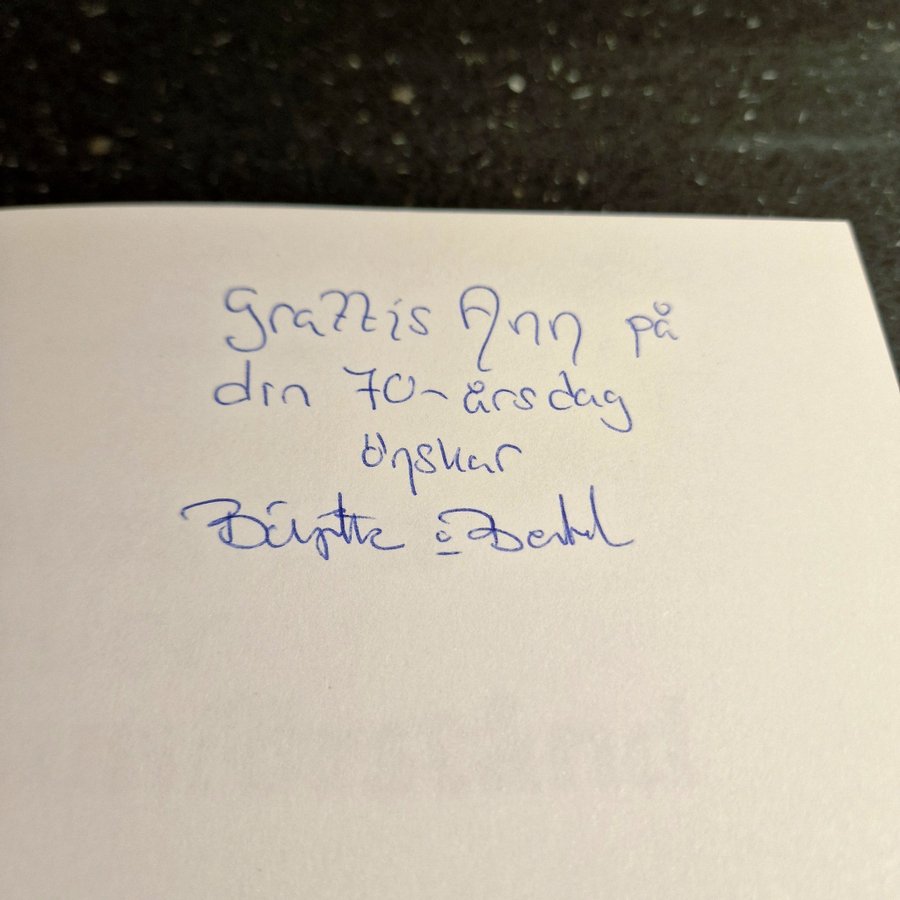 Grattis Ann på
din 70-årsdag
önskar
Birgitta o Bertil